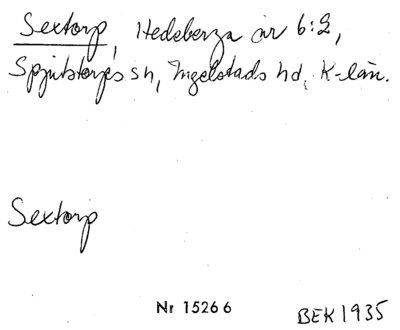 Sextorp, Hedeberga är 6:2,
Spjutstorps sn, Ingelstads hd, K-län.
Sextorp
Nr 15266
BEK 1935